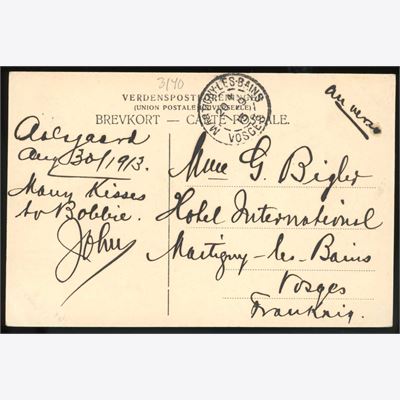 3/40
MARTIGNY-LES-BAINS
VOSGES
VERDENSPOSTFORENINGEN
(UNION POSTALE UNIVERSELLE)
BREVKORT — CARTE POSTALE.
au verso
Aalsgaard
Aug 30/1913.
Many Kisses
to Bobbie.
John
Mme G Bigler
Hotel International
Martigny-les-Bains
Vosges
Frankrig.